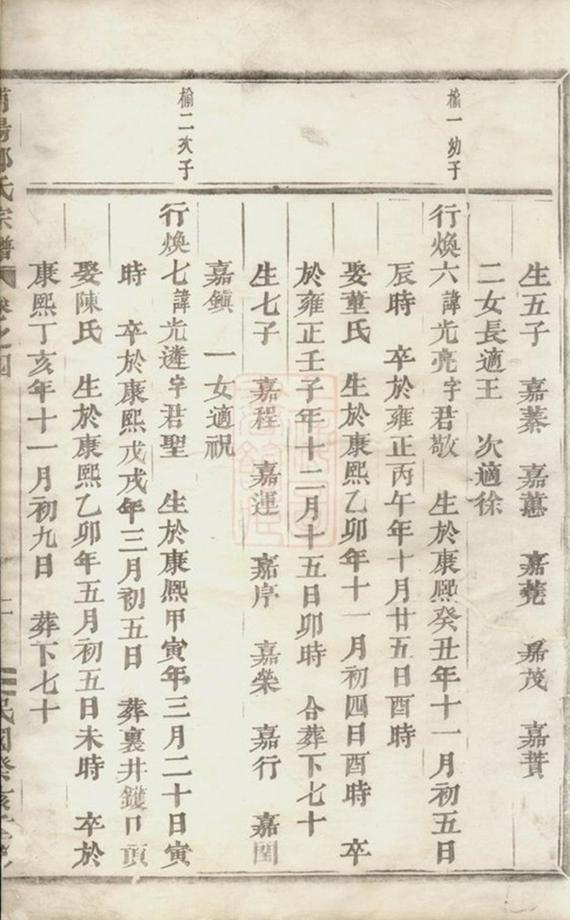 生五子 嘉蓁 嘉蕙 嘉蕘 嘉茂 嘉蕡
二女長適王 次適徐
榆一幼子
行煥六諱光亮字君敬 生於康熙癸丑年十一月初五日
辰時 卒於雍正丙午年十月廿五日酉時
娶童氏 生於康熙乙卯年十一月初四日酉時 卒
於雍正壬子年十二月十五日卯時 合葬下七十
生七子 嘉程 嘉運 嘉序 嘉榮 嘉行 嘉閏
嘉鎮 一女適祝
榆二次子
行煥七諱光達字君聖 生於康熙甲寅年三月二十日寅
時 卒於康熙戊戌年三月初五日 葬裏井鑊口頂
娶陳氏 生於康熙乙卯年五月初五日未時 卒於
康熙丁亥年十一月初九日 葬下七十
氏宗譜 卷之四 二 民國癸亥